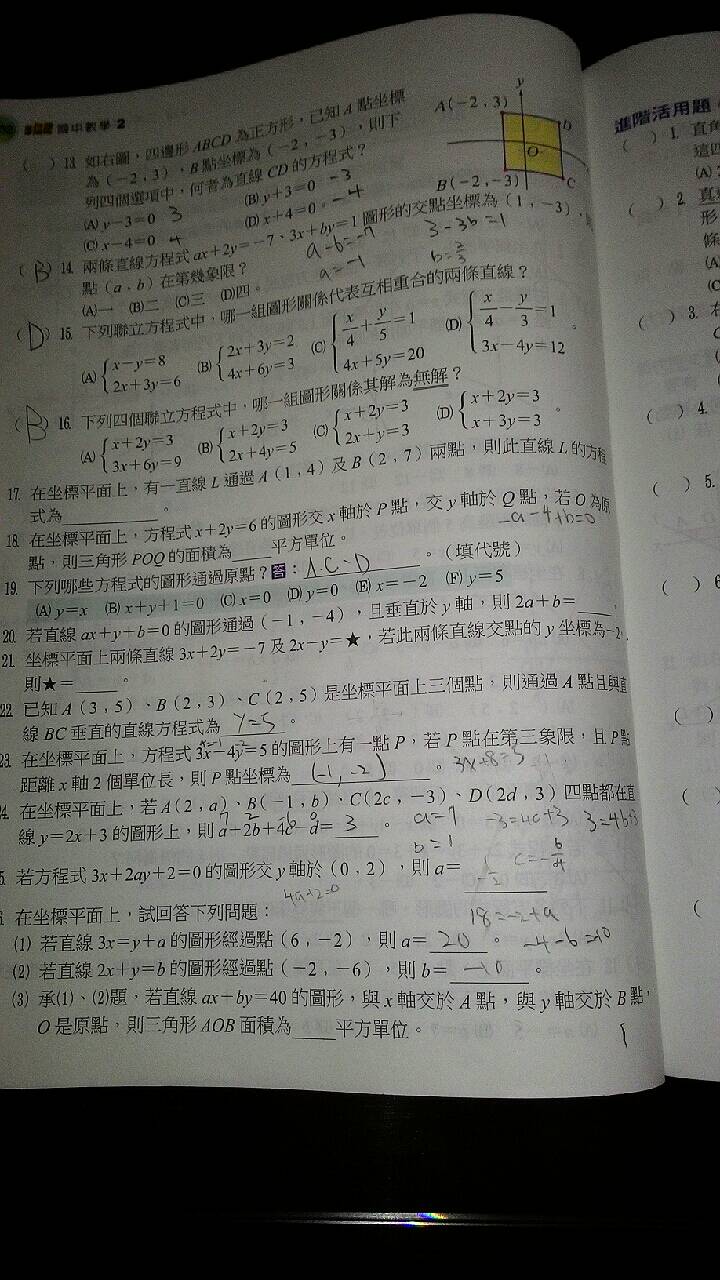 國中數學 2
A(−2,3)
y
D
O
B(−2,−3)
C
( ) 13. 如右圖,四邊形 ABCD 為正方形,已知 A 點坐標
為(−2,3)、B 點坐標為(−2,−3),則下
列四個選項中,何者為直線 CD 的方程式?
(A) y−3=0 3 (B) y+3=0 −3
(C) x−4=0 4 (D) x+4=0 −4
(B) 14. 兩條直線方程式 ax+2y=−7、3x+by=1 圖形的交點坐標為(1,−3),
點(a,b)在第幾象限?
(A)一 (B)二 (C)三 (D)四。
a−6=−7
a=−1
3−3b=1
b=2/3
(D) 15. 下列聯立方程式中,哪一組圖形關係代表互相重合的兩條直線?
(A) { x−y=8 (B) { 2x+3y=2 (C) { x/4+y/5=1 (D) { x/4−y/3=1
2x+3y=6 4x+6y=3 4x+5y=20 3x−4y=12 。
(B) 16. 下列四個聯立方程式中,哪一組圖形關係其解為無解?
(A) { x+2y=3 (B) { x+2y=3 (C) { x+2y=3 (D) { x+2y=3
3x+6y=9 2x+4y=5 2x−y=3 x+3y=3 。
17. 在坐標平面上,有一直線 L 通過 A(1,4)及 B(2,7)兩點,則此直線 L 的方程
式為 。
18. 在坐標平面上,方程式 x+2y=6 的圖形交 x 軸於 P 點,交 y 軸於 Q 點,若 O 為原
點,則三角形 POQ 的面積為 平方單位。
−a−4+b=0
19. 下列哪些方程式的圖形通過原點?答: A、C、D 。(填代號)
(A) y=x (B) x+y+1=0 (C) x=0 (D) y=0 (E) x=−2 (F) y=5
20. 若直線 ax+y+b=0 的圖形通過(−1,−4),且垂直於 y 軸,則 2a+b= 。
21. 坐標平面上兩條直線 3x+2y=−7 及 2x−y=★,若此兩條直線交點的 y 坐標為−2,
則★= 。
22. 已知 A(3,5)、B(2,3)、C(2,5)是坐標平面上三個點,則通過 A 點且與直
線 BC 垂直的直線方程式為 y=5 。
23. 在坐標平面上,方程式 3x−4y=5 的圖形上有一點 P,若 P 點在第三象限,且 P 點
距離 x 軸 2 個單位長,則 P 點坐標為 (−1,−2) 。
24. 在坐標平面上,若 A(2,a)、B(−1,b)、C(2c,−3)、D(2d,3)四點都在直
線 y=2x+3 的圖形上,則 a−2b+4c−d= 3 。
a=7 −3=4c+3
b=1
5. 若方程式 3x+2ay+2=0 的圖形交 y 軸於(0,2),則 a=
4a+2=0
在坐標平面上,試回答下列問題:
18=−2+a
(1) 若直線 3x=y+a 的圖形經過點(6,−2),則 a= 20 。
(2) 若直線 2x+y=b 的圖形經過點(−2,−6),則 b= −10 。
(3) 承(1)、(2)題,若直線 ax−by=40 的圖形,與 x 軸交於 A 點,與 y 軸交於 B 點,
O 是原點,則三角形 AOB 面積為 平方單位。
進階活用題
( ) 1. 直角
這四
(A)
( ) 2.
形
條
(A)
(C)
( ) 3.
( ) 4.
( ) 5.
( ) 6
( )
( )
(